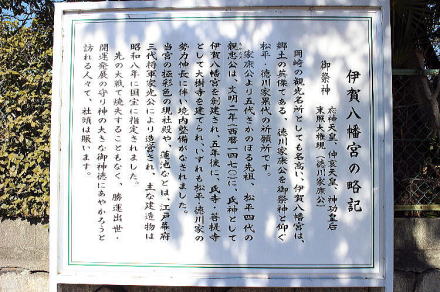 伊賀八幡宮の略記
御祭神　応神天皇、仲哀天皇、神功皇后
東照大権現（徳川家康公）
岡崎の観光名所としても名高い、伊賀八幡宮は、
郷土の英傑である、徳川家康公を御祭神と仰ぐ
松平・徳川家累代の祈願所です。
家康公より五代さかのぼる先祖、松平四代の
親忠公は、文明二年（西暦一四七〇）に、氏神として
伊賀八幡宮を創建され、五年後に、氏寺・菩提寺
として大樹寺を建てられ、いずれも松平・徳川家の
勢力伸長に伴い境内整備がなされました。
当宮の極彩色の現社殿や、蓮池などは、江戸幕府
三代将軍家光公により造営され、主な建造物は
昭和八年に国宝に指定されました。
先の大戦で焼失することもなく、勝運出世・
開運発展の守り神の大きな御神徳にあやかろうと
訪れる人々で、社頭は賑います。